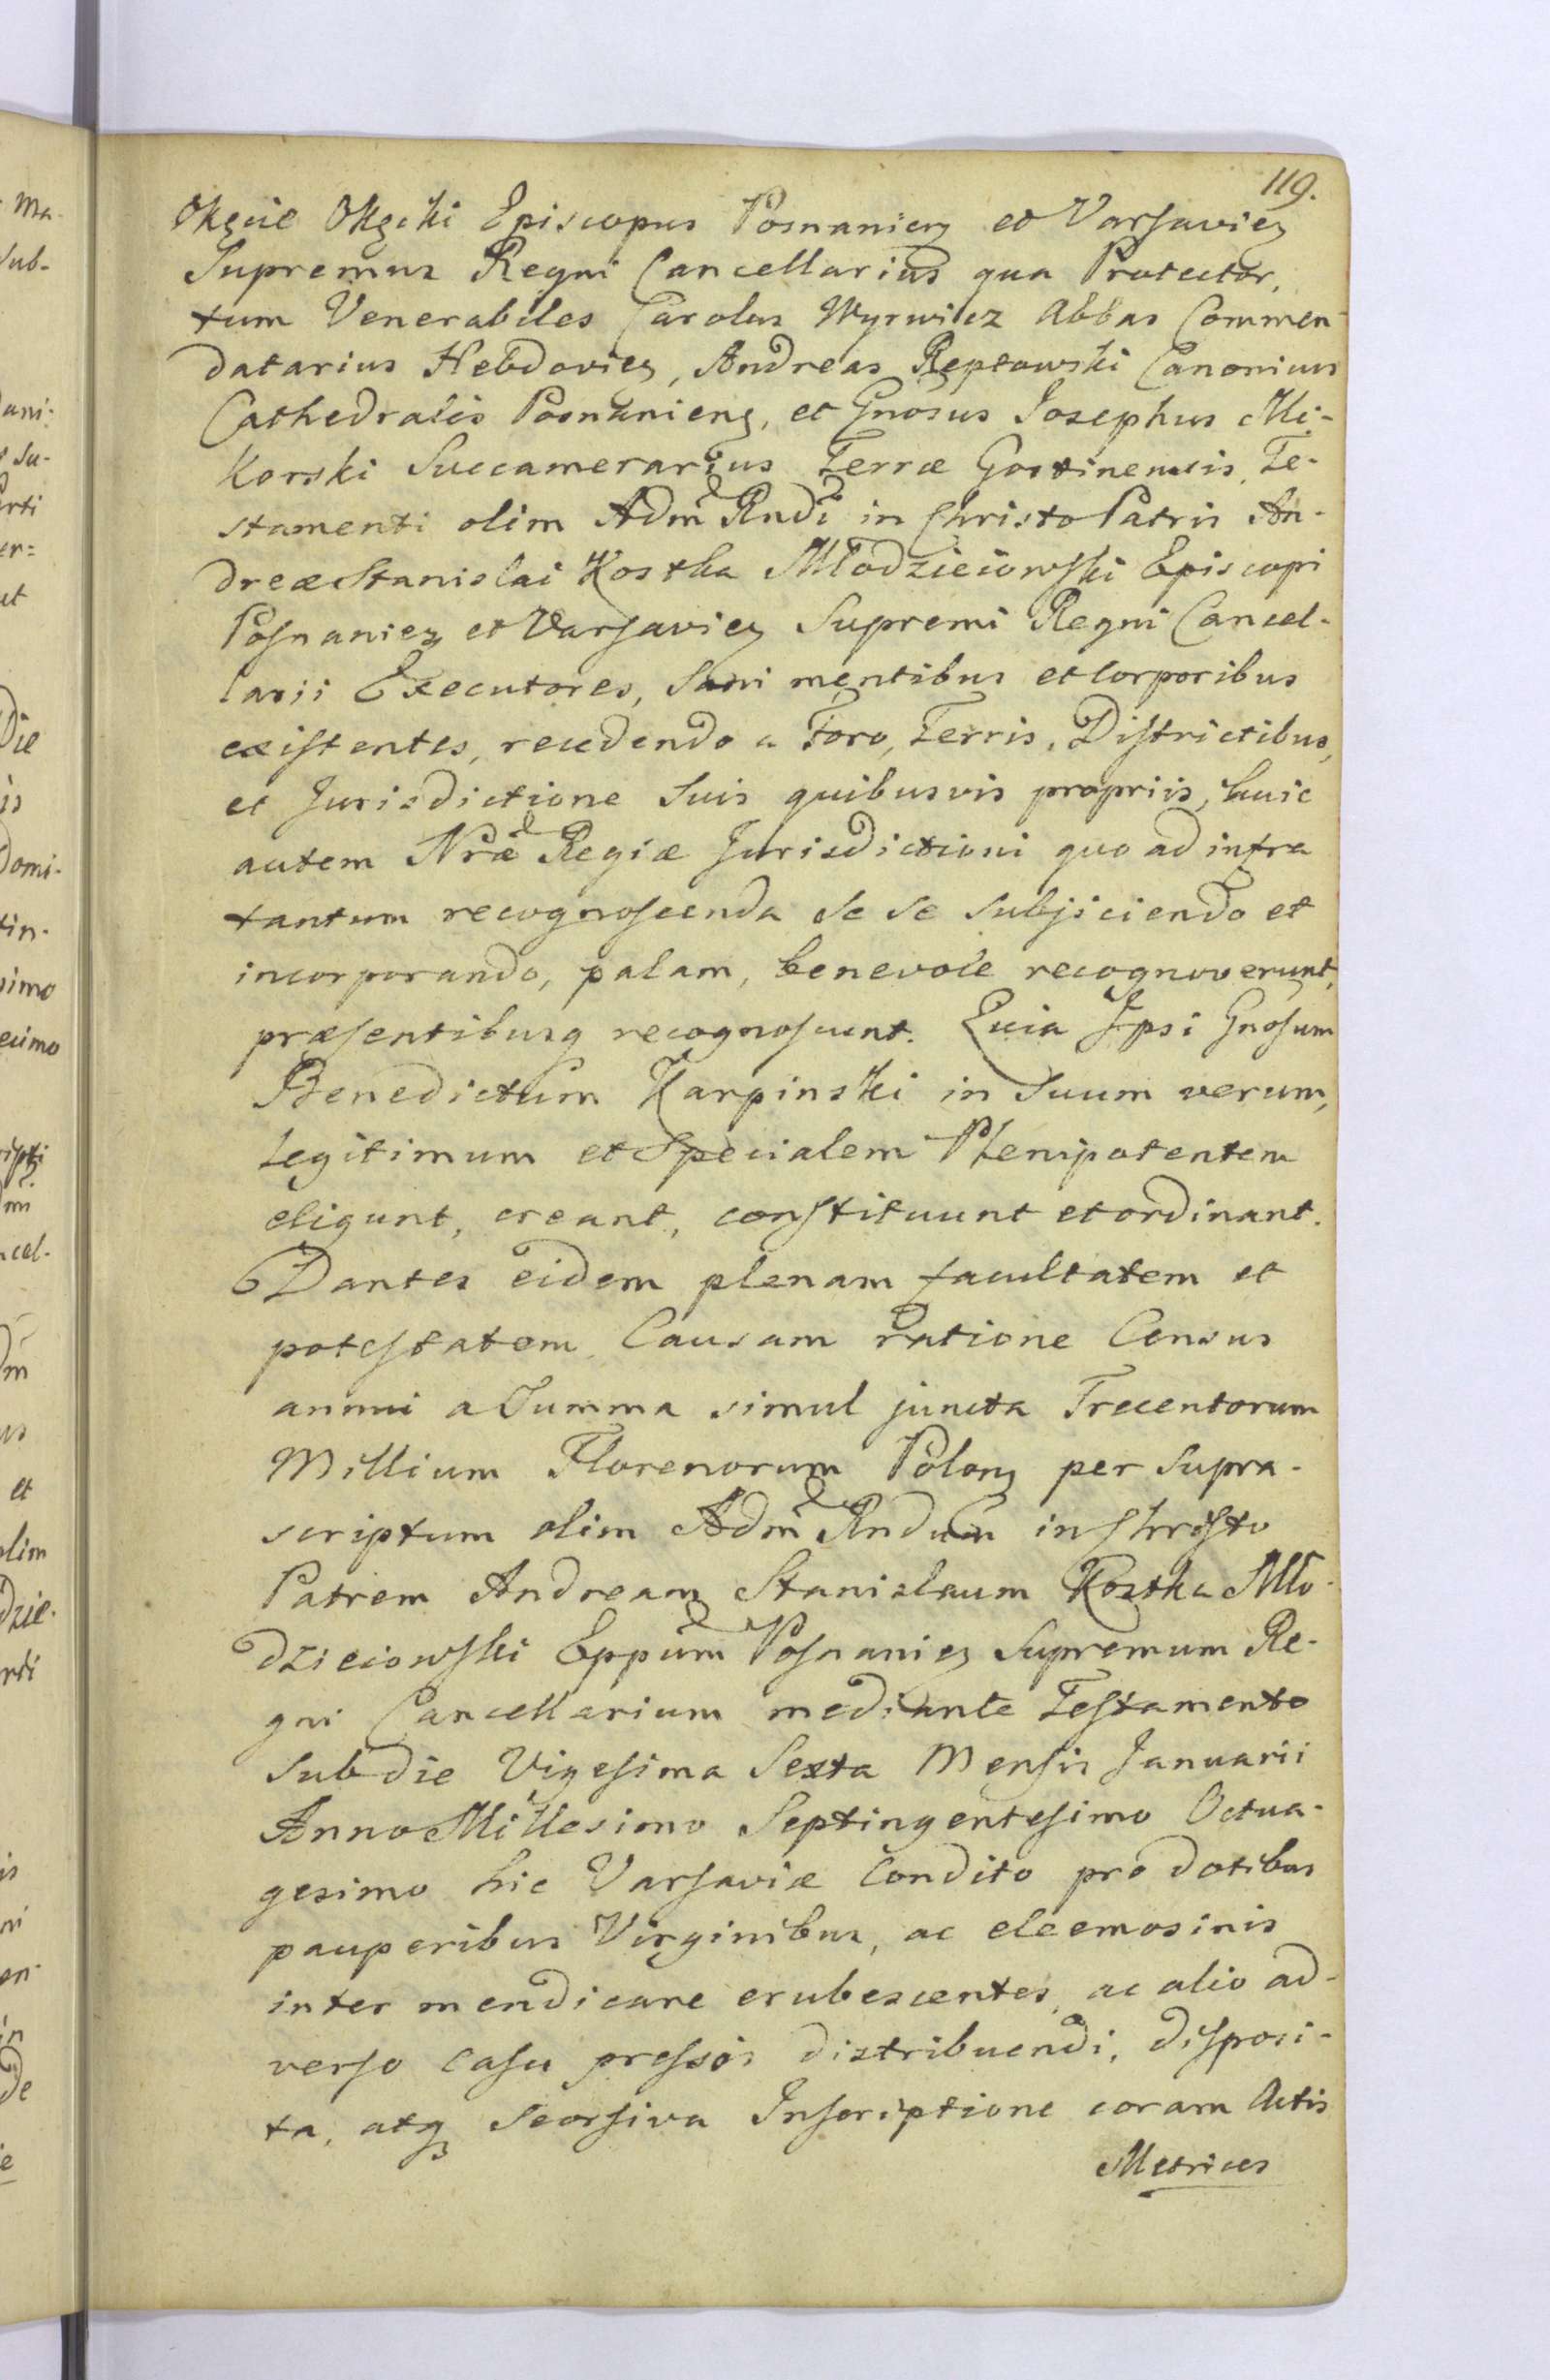 119.
Okęcie Okęcki Episcopus Posnanien et Varsavien
Supremus Regni Cancellarius qua Protector,
tum Venerabiles Carolus Wyrwicz Abbas Commen-
datarius Hebdovien, Andreas Reptowski Canonicus
Cathedralis Posnaniens, et Gnosus Josephus Mi-
korski Succamerarius Terræ Gostinensis, Te-
stamenti olim Adm Rndi in Christo Patris An-
dreæ Stanislai Kostka Młodzieiowski Episcopi
Posnanien et Varsavien Supremi Regni Cancel-
larii Executores, Sani mentibus et Corporibus
existentes, recedendo a Foro, Terris, Districtibus,
et Jurisdictione Suis quibusvis propriis, huic
autem Nræ Regiæ Jurisdictioni quo ad infra
tantum recognoscenda Se Se Subjiciendo et
incorporando, palam, benevole recognoverunt,
præsentibusq recognoscunt. Quia Ipsi Gnosum
Benedictum Karpinski in Suum verum,
Legitimum et Specialem Plenipotentem
eligunt, creant, constituunt et ordinant.
Dantes eidem plenam facultatem et
potestatem Causam ratione Census
annui a Summa simul juncta Trecentorum
Millium Florenorum Polon per Supra-
scriptum olim Adm Rndum in Christo
Patrem Andream Stanislaum Kostka Mło-
dzieiowski Eppum Posnanien Supremum Re-
gni Cancellarium mediante Testamento
Sub die Vigesima Sexta Mensis Januarii
Anno Millesimo Septingentesimo Octua-
gesimo hic Varsaviæ Condito pro dotibus
pauperibus Virginibus, ac eleemosinis
inter mendicare erubescentes, ac alio ad-
verso Casu pressos distribuendi, disposi-
ta, atq Seorsiva Inscriptione coram Actis
Metrices